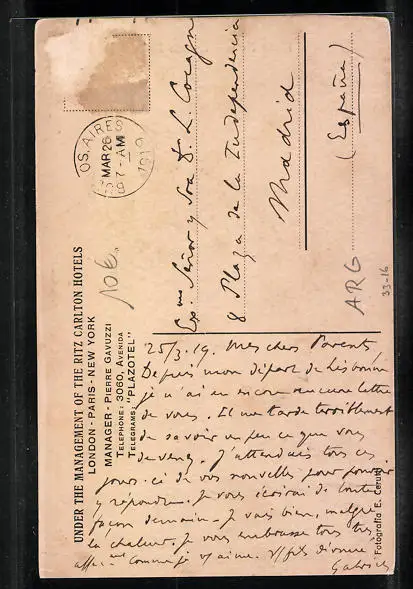 OS. AIRES
MAR 26
7 - AM
1919
UNDER THE MANAGEMENT OF THE RITZ CARLTON HOTELS
LONDON - PARIS - NEW YORK
MANAGER - PIERRE GAVUZZI
TELEPHONE: 3060, AVENIDA
TELEGRAMS: "PLAZOTEL"
10 €.
Exmos Señor y Sra D. L.
8 Plaza de la Independencia
Madrid
(España)
ARG
33-16
25/3.19. Mes chers Parents,
Depuis mon départ de Lisbonne
je n'ai encore aucune lettre
de vous. Il me tarde terriblement
de savoir un peu ce que vous
devenez. J'attendais tous ces
jours-ci de vos nouvelles pour pouvoir
y répondre. Je vous écrirai de toute
façon demain. Je vais bien, malgré
la chaleur. Je vous embrasse tous très
affment comme je v/ aime. V/ fils
Fotografía E. Cerutti